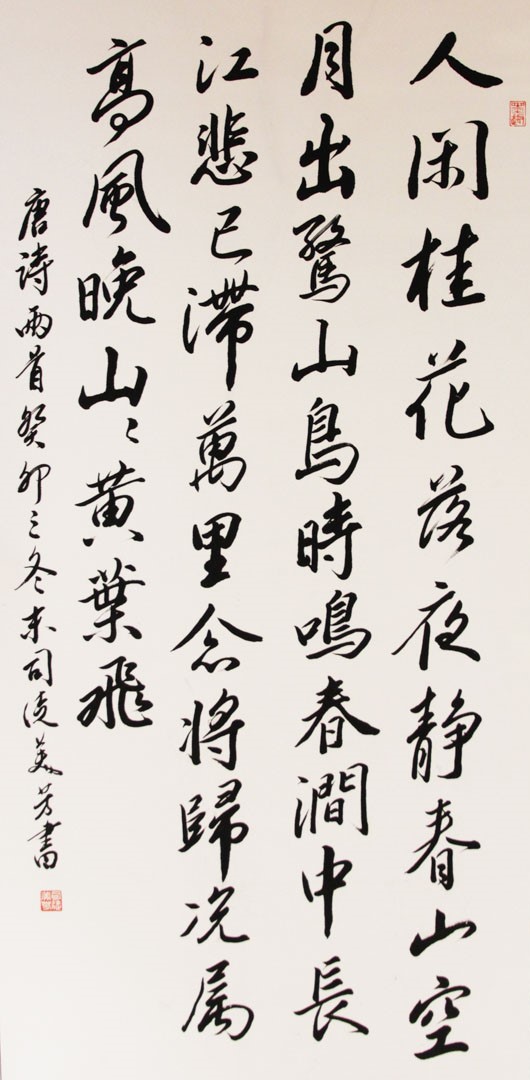 人闲桂花落夜静春山空
月出驚山鳥時鳴春澗中長
江悲已滯萬里念将歸况属
高風晚山〻黄葉飛
唐詩兩首癸卯之冬末司徒美芳書